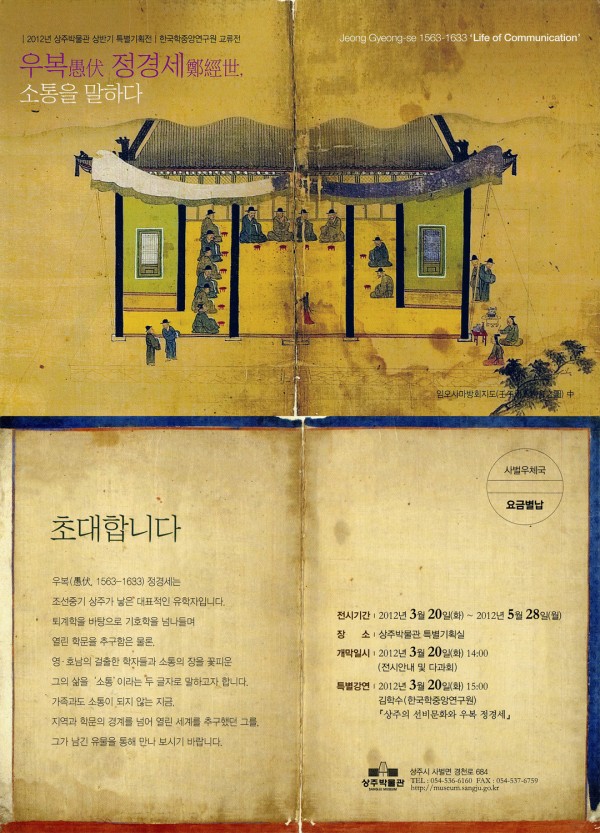 | 2012년 상주박물관 상반기 특별기획전 | 한국학중앙연구원 교류전
우복愚伏 정경세鄭經世,
소통을 말하다
Jeong Gyeong-se 1563-1633 ‘Life of Communication’
임오사마방회지도(壬午司馬榜會之圖) 中
초대합니다
우복(愚伏, 1563-1633) 정경세는
조선중기 상주가 낳은 대표적인 유학자입니다.
퇴계학을 바탕으로 기호학을 넘나들며
열린 학문을 추구함은 물론,
영·호남의 걸출한 학자들과 소통의 장을 꽃피운
그의 삶을 ‘소통’ 이라는 두 글자로 말하고자 합니다.
가족과도 소통이 되지 않는 지금,
지역과 학문의 경계를 넘어 열린 세계를 추구했던 그를,
그가 남긴 유물을 통해 만나 보시기 바랍니다.
사벌우체국
요금별납
전시기간 : 2012년 3월 20일(화) ~ 2012년 5월 28일(월)
장 소 : 상주박물관 특별기획실
개막일시 : 2012년 3월 20일(화) 14:00
(전시안내 및 다과회)
특별강연 : 2012년 3월 20일(화) 15:00
김학수(한국학중앙연구원)
『상주의 선비문화와 우복 정경세』
상주박물관
SANGJU MUSEUM
상주시 사벌면 경천로 684
TEL : 054-536-6160 FAX : 054-537-6759
http://museum.sangju.go.kr